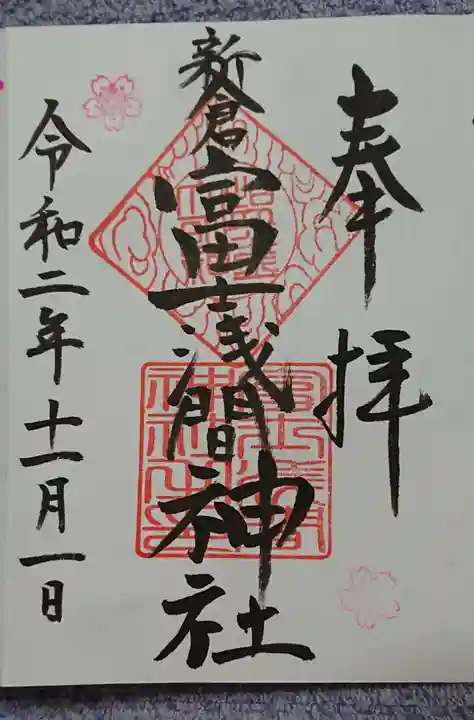 奉拝
新倉富士浅間神社
令和二年十一月一日